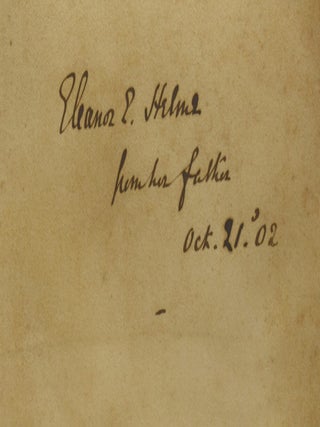 Eleanor E. Helme
from her father
Oct. 21. '02